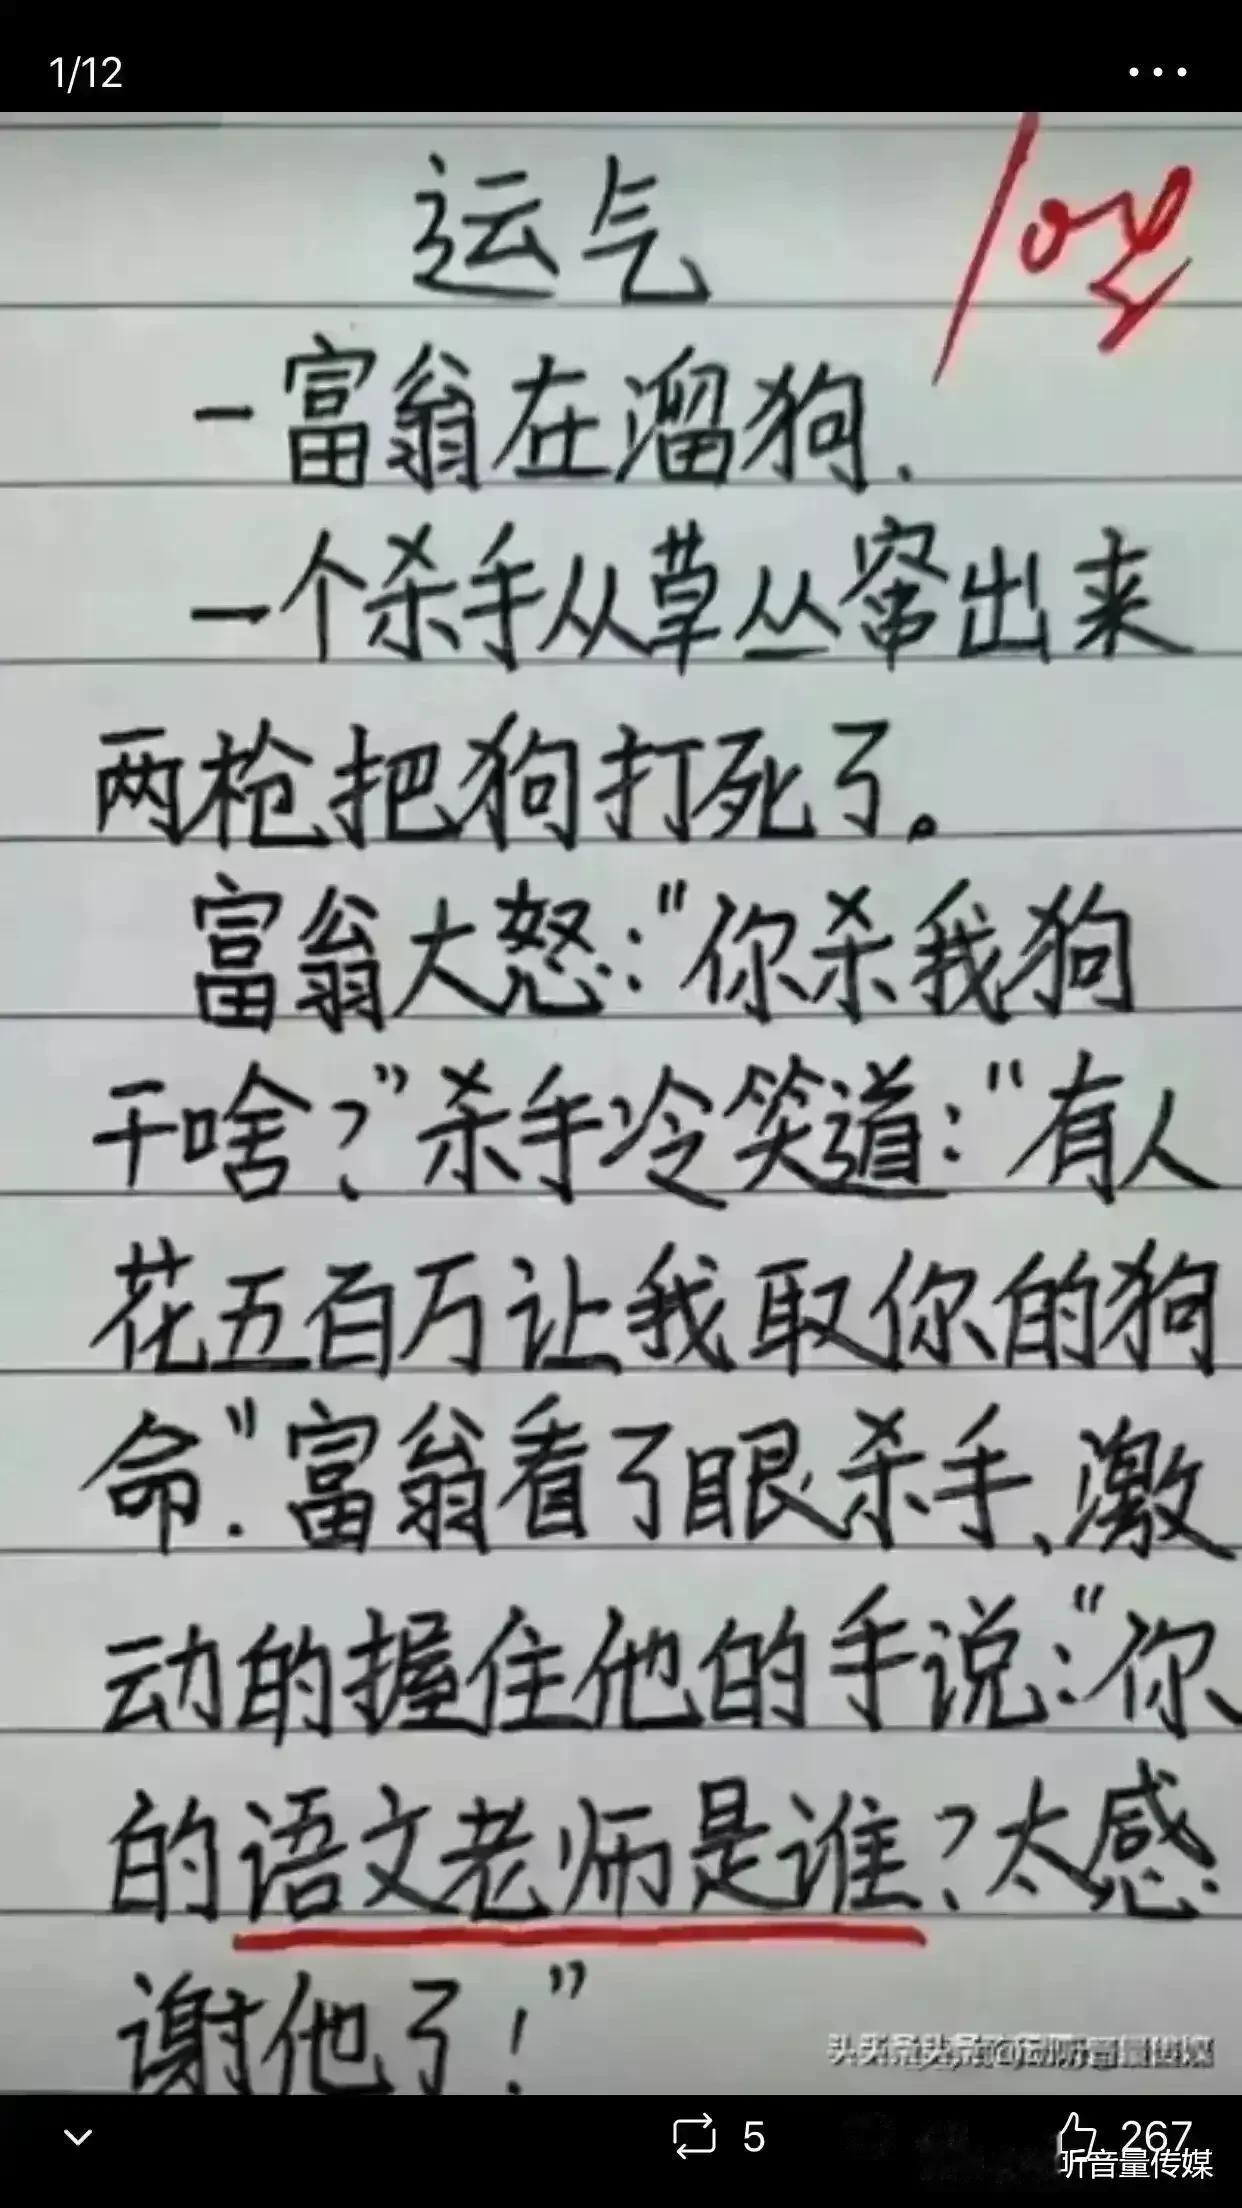 1/12
运气
一富翁在溜狗.
一个杀手从草丛窜出来
两枪把狗打死了。
富翁大怒:"你杀我狗
干啥?"杀手冷笑道:"有人
花五百万让我取你的狗
命".富翁看了眼杀手、激
动的握住他的手说:"你
的语文老师是谁?太感
谢他了!"
5
267
听音量传媒